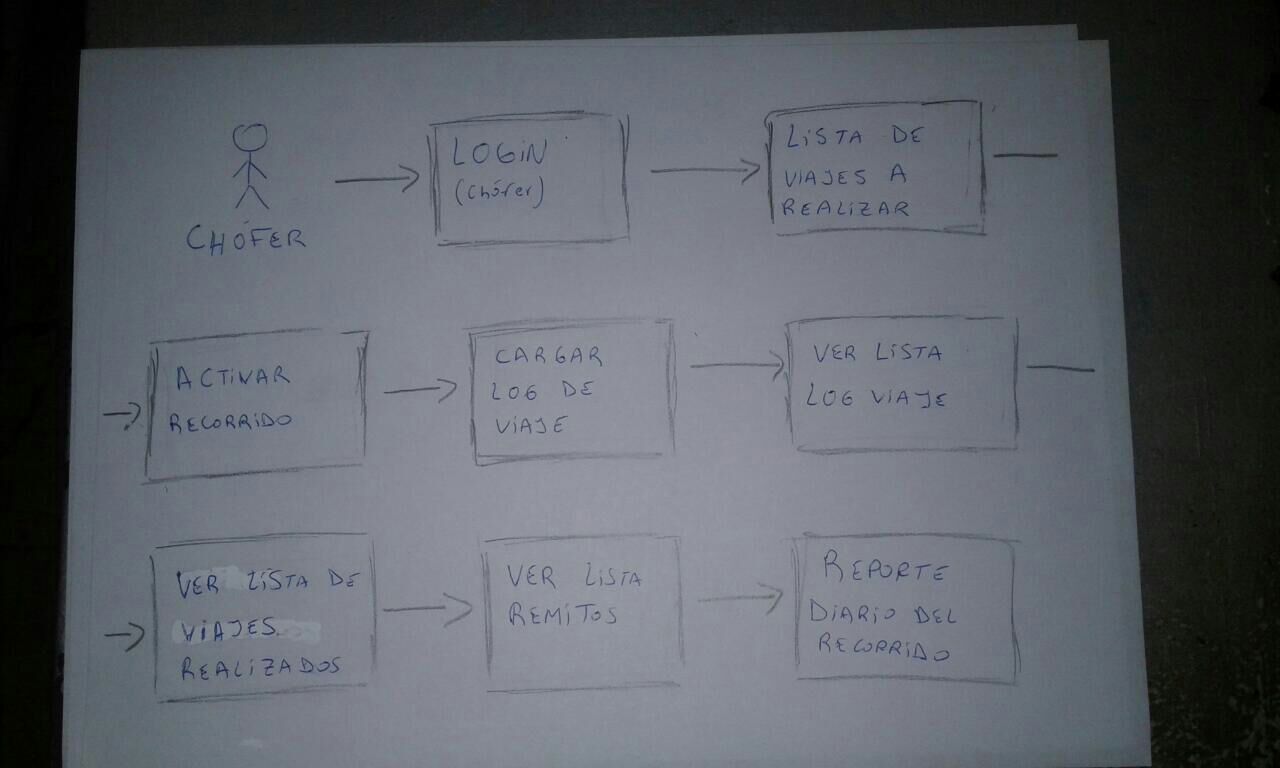 CHÓFER
LOGIN
(chófer)
LISTA DE
VIAJES A
REALIZAR
ACTIVAR
RECORRIDO
CARGAR
LOG DE
VIAJE
VER LISTA
LOG VIAJE
VER LISTA DE
VIAJES
REALIZADOS
VER LISTA
REMITOS
REPORTE
DIARIO DEL
RECORRIDO